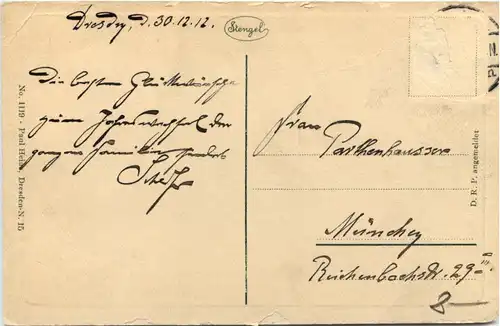 Dresden, d. 30.12.12.
Stengel
Die besten Glückwünsche
zum Jahreswechsel der
ganzen Familie sendet
Frau
Parkhenhausser
München
Reichenbachstr. 29
8
No. 1119 - Paul Heine, Dresden-N. 15
D. R. P. angemeldet